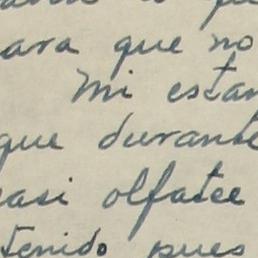 para que no
Mi estan
que durante
casi olfatee
tenido pues